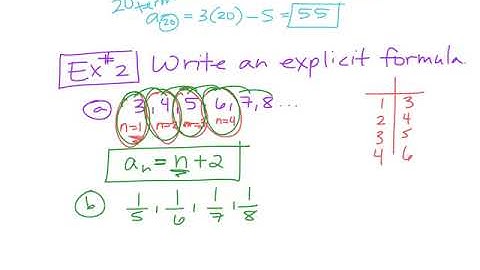 20th term
a₂₀ = 3(20) - 5 = 55
Ex#2 Write an explicit formula.
a 3, 4, 5 6, 7, 8 ...
n=1 n=2 n=3 n=4
aₙ = n + 2
1 3
2 4
3 5
4 6
b 1/5, 1/6, 1/7, 1/8